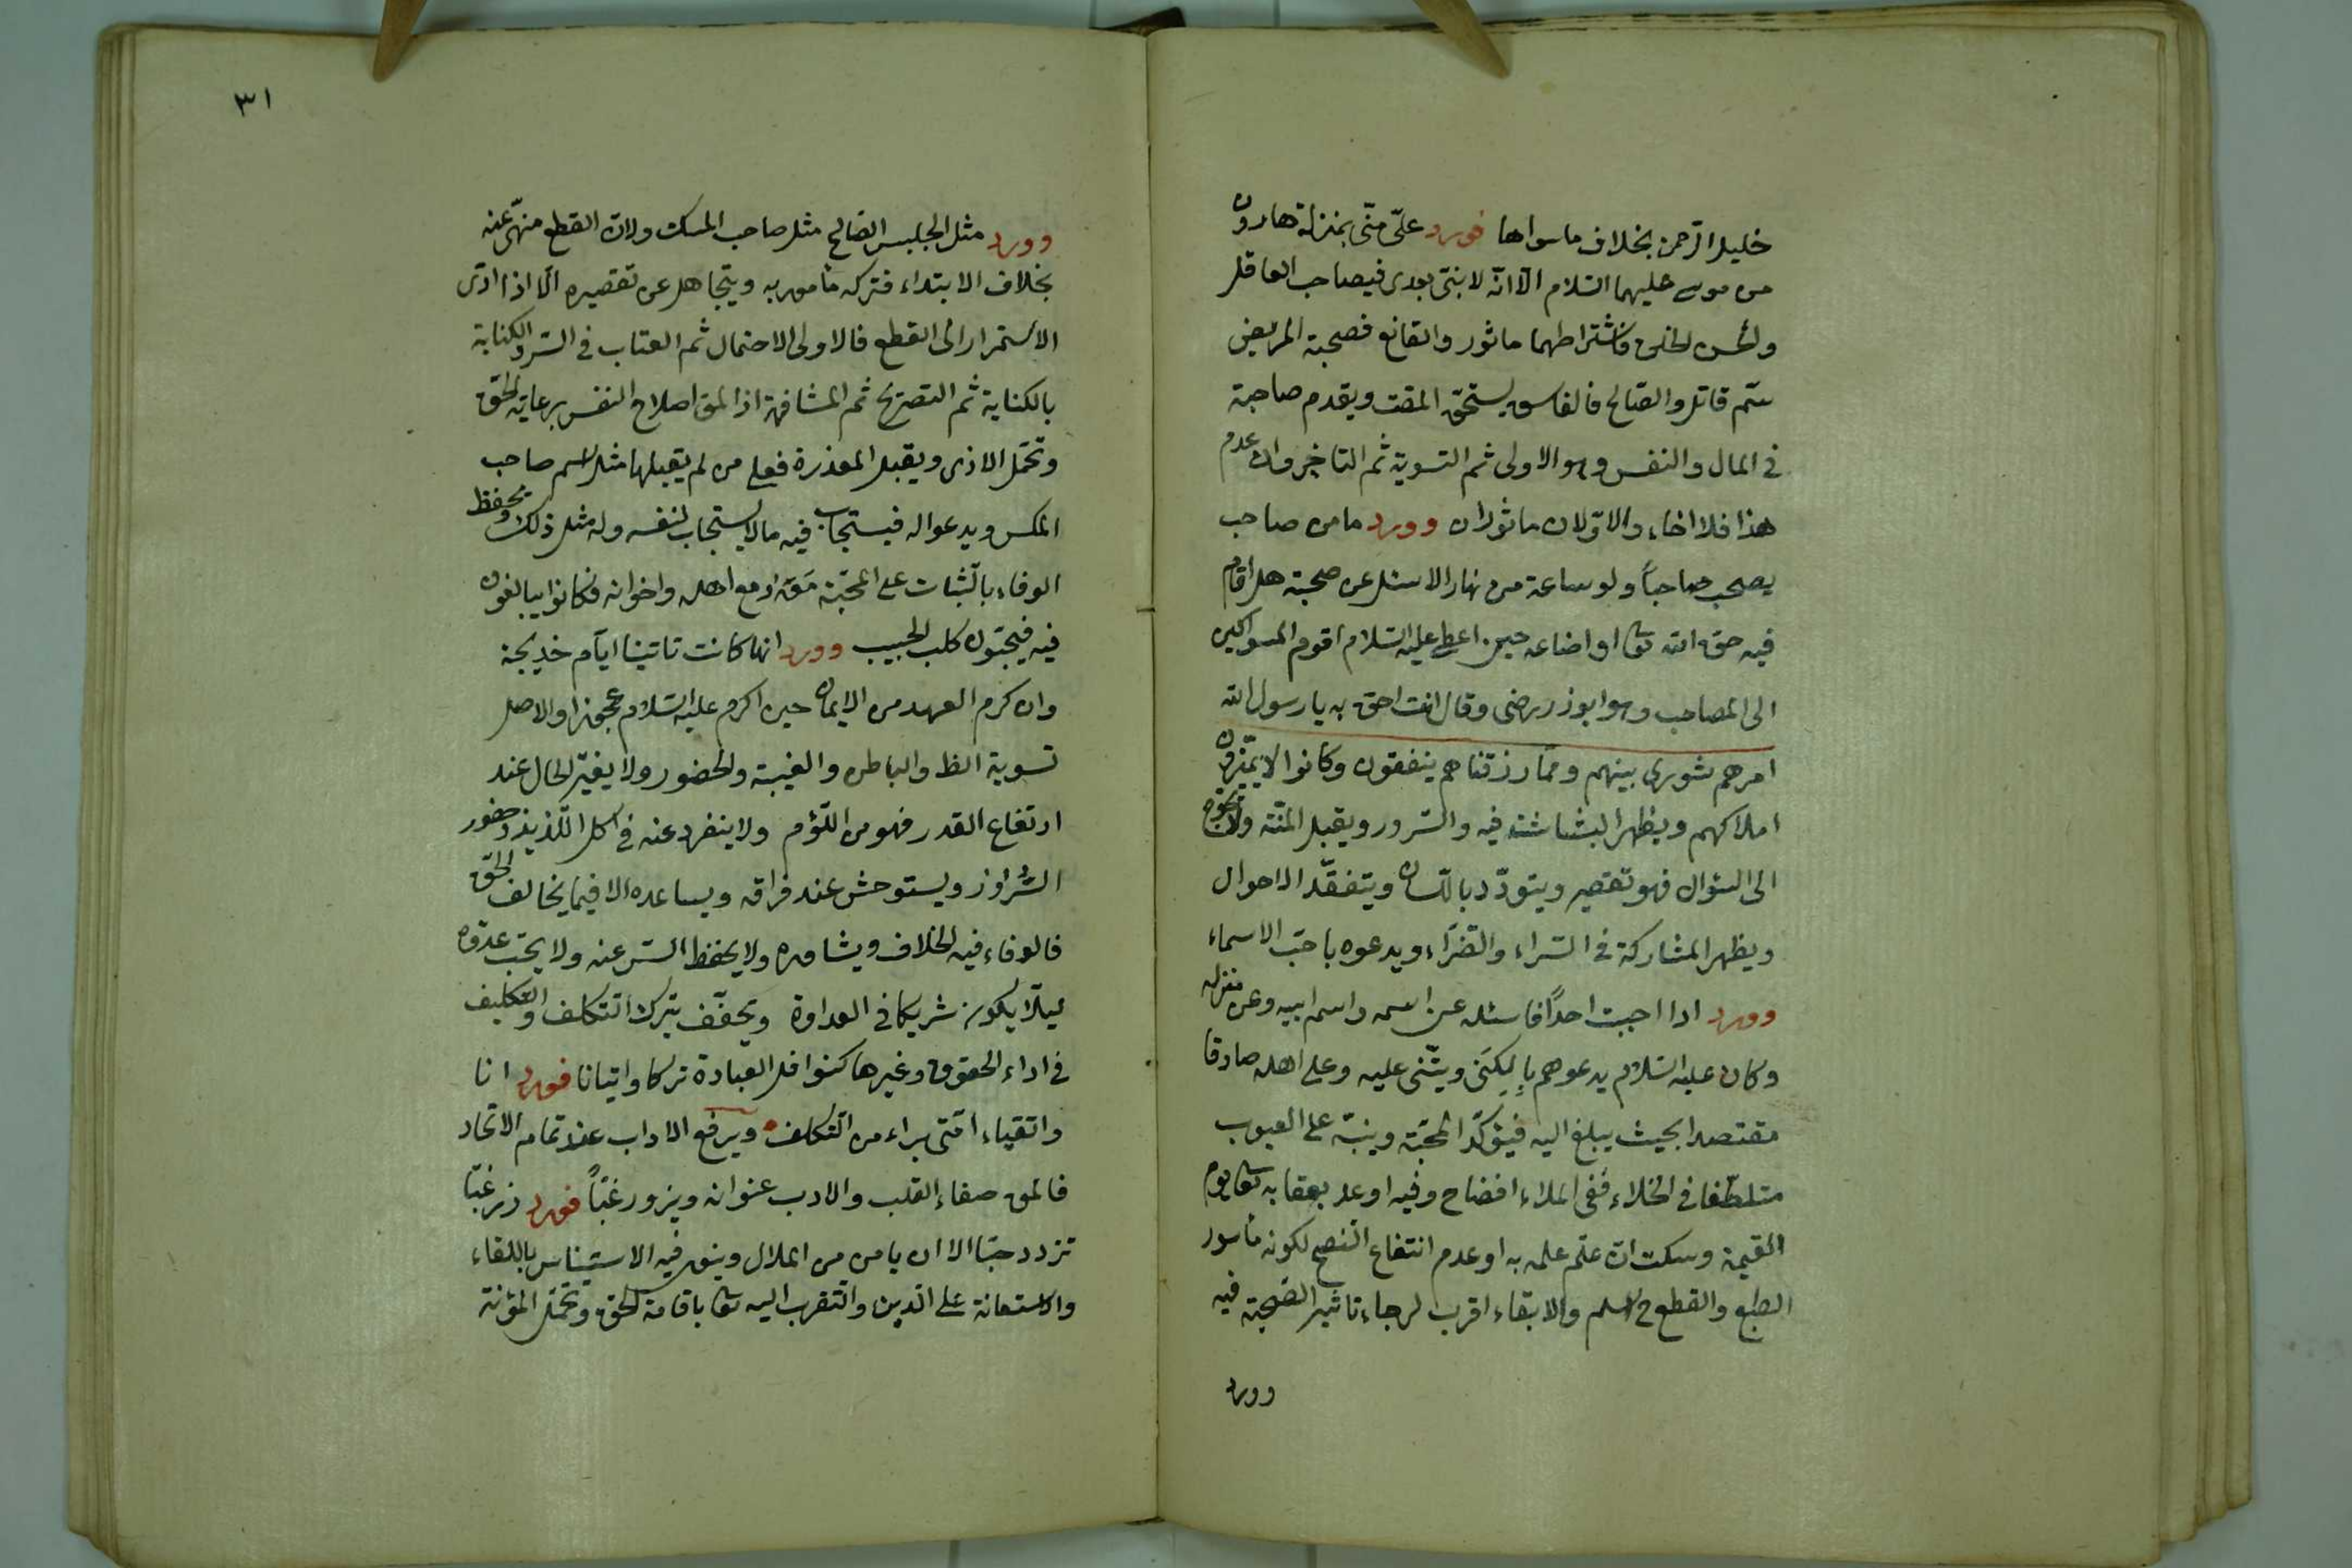 خليل الرّحمن بخلاف ماسواها فورد علىّ منّى بمنزلة هارون
من موسى عليهما السّلام الّا انّه لا نبىّ بعدى فيصاحب العاقل
ولحسن الخلق فاشتراطهما ماثور والقانع فصحبة الحريص
سمّ قاتل والصّالح فالفاسق يستحقّ المقت ويقدم صاحبه
فى المال والنفس وهو الاولى ثم التسوية ثم التاخير وان عدم
هذا فلا اخاء والاوّلان ماثوران وورد ما من صاحب
يصحب صاحباً ولو ساعة من نهار الا سئل عن صحبته هل اقام
فيه حق الله تعا او اضاعه حين اعطى عليه السّلام اقوم المسواكين
الى المصاحب وهو ابوذر رضى وقال انت احق به يا رسول الله
امرهم شورى بينهم وممّا رزقناهم ينفقون وكانوا لا يميّزون
املاكهم ويظهر البشاشة فيه والسّرور ويقبل المنّة ولا يحوج
الى السّؤال فهو تقصير ويتودّد باللّسان ويتفقّد الاحوال
ويظهر المشاركة فى السّراء والضّرّاء ويدعوه باحبّ الاسماء
وورد اذا احببت احدًا فاسئله عن اسمه واسم ابيه وعن منزله
وكان عليه السّلام يدعوهم بالكنى ويثنى عليه وعلى اهله صادقا
مقتصدا بحيث يبلغ اليه فيؤكّد المحبّة وينبّه على العيوب
متلطّفا فى الخلاء ففى الملاء افضاح وفيه اوعد بعقابه تعا يوم
القيمة وسكت ان علم علمه به او عدم انتفاع النصح لكونه مأسور
الطبع والقطع ح اسلم والابقاء اقرب لرجاء تاثير الصّحبة فيه
وورد
٣١
وورد مثل الجليس الصّالح مثل صاحب المسك ولانّ القطع منهىّ عنه
بخلاف الابتداء فتركه مأمور به ويتجاهل عن تقصيره الّا اذا ادّى
الاستمرار الى القطع فالاولى الاحتمال ثم العتاب فى السّرّ والكناية
بالكناية ثم التصريح ثم المشافهة اذ المقـ اصلاح النفس برعاية الحقّ
وتحمّل الاذى ويقبل المعذرة فعلى من لم يقبلها مثل اسم صاحب
المكس ويدعو له فيستجاب فيه ما لا يستجاب لنفسه وله مثل ذلك ويحفظ
الوفاء بالثّبات على المحبّة معه او مع اهله واخوانه فكانوا يبالغون
فيه فيحبّون كلب الحبيب وورد انها كانت تاتينا ايّام خديجة
وان كرم العهد من الايمان حين اكرم عليه السّلام عجوزا والاصل
تسوية الظ والباطن والغيبة والحضور ولا يغيّر الحال عند
ارتفاع القدر فهو من اللّؤم ولا ينفرد عنه فى اكل اللّذيذ وحضور
السّراوز ويستوحش عند فراقه ويساعده الا فيما يخالف الحقّ
فالوفاء فيه الخلاف ويشاوره ولا يحفظ السّر عنه ولا يحبّ عدوّه
ليلّا يكون شريكا فى العداوة ويخفّف بترك التكلف والتكليف
فى اداء الحقوق وغيرها كنوافل العبادة تركا واتيانا فورد انا
واتقياء امّتى براء من التكلف ويرفع الاداب عند تمام الاتحاد
فالمق صفاء القلب والادب عنوانه ويزور غبّاً فورد زر غبّا
تزدد حبّا الا ان يامن من الملال وينوى فيه الاستيناس باللقاء
والاستعانة على الدّين والتقرب اليه تعا باقامة الحق وتحمّل المؤنة